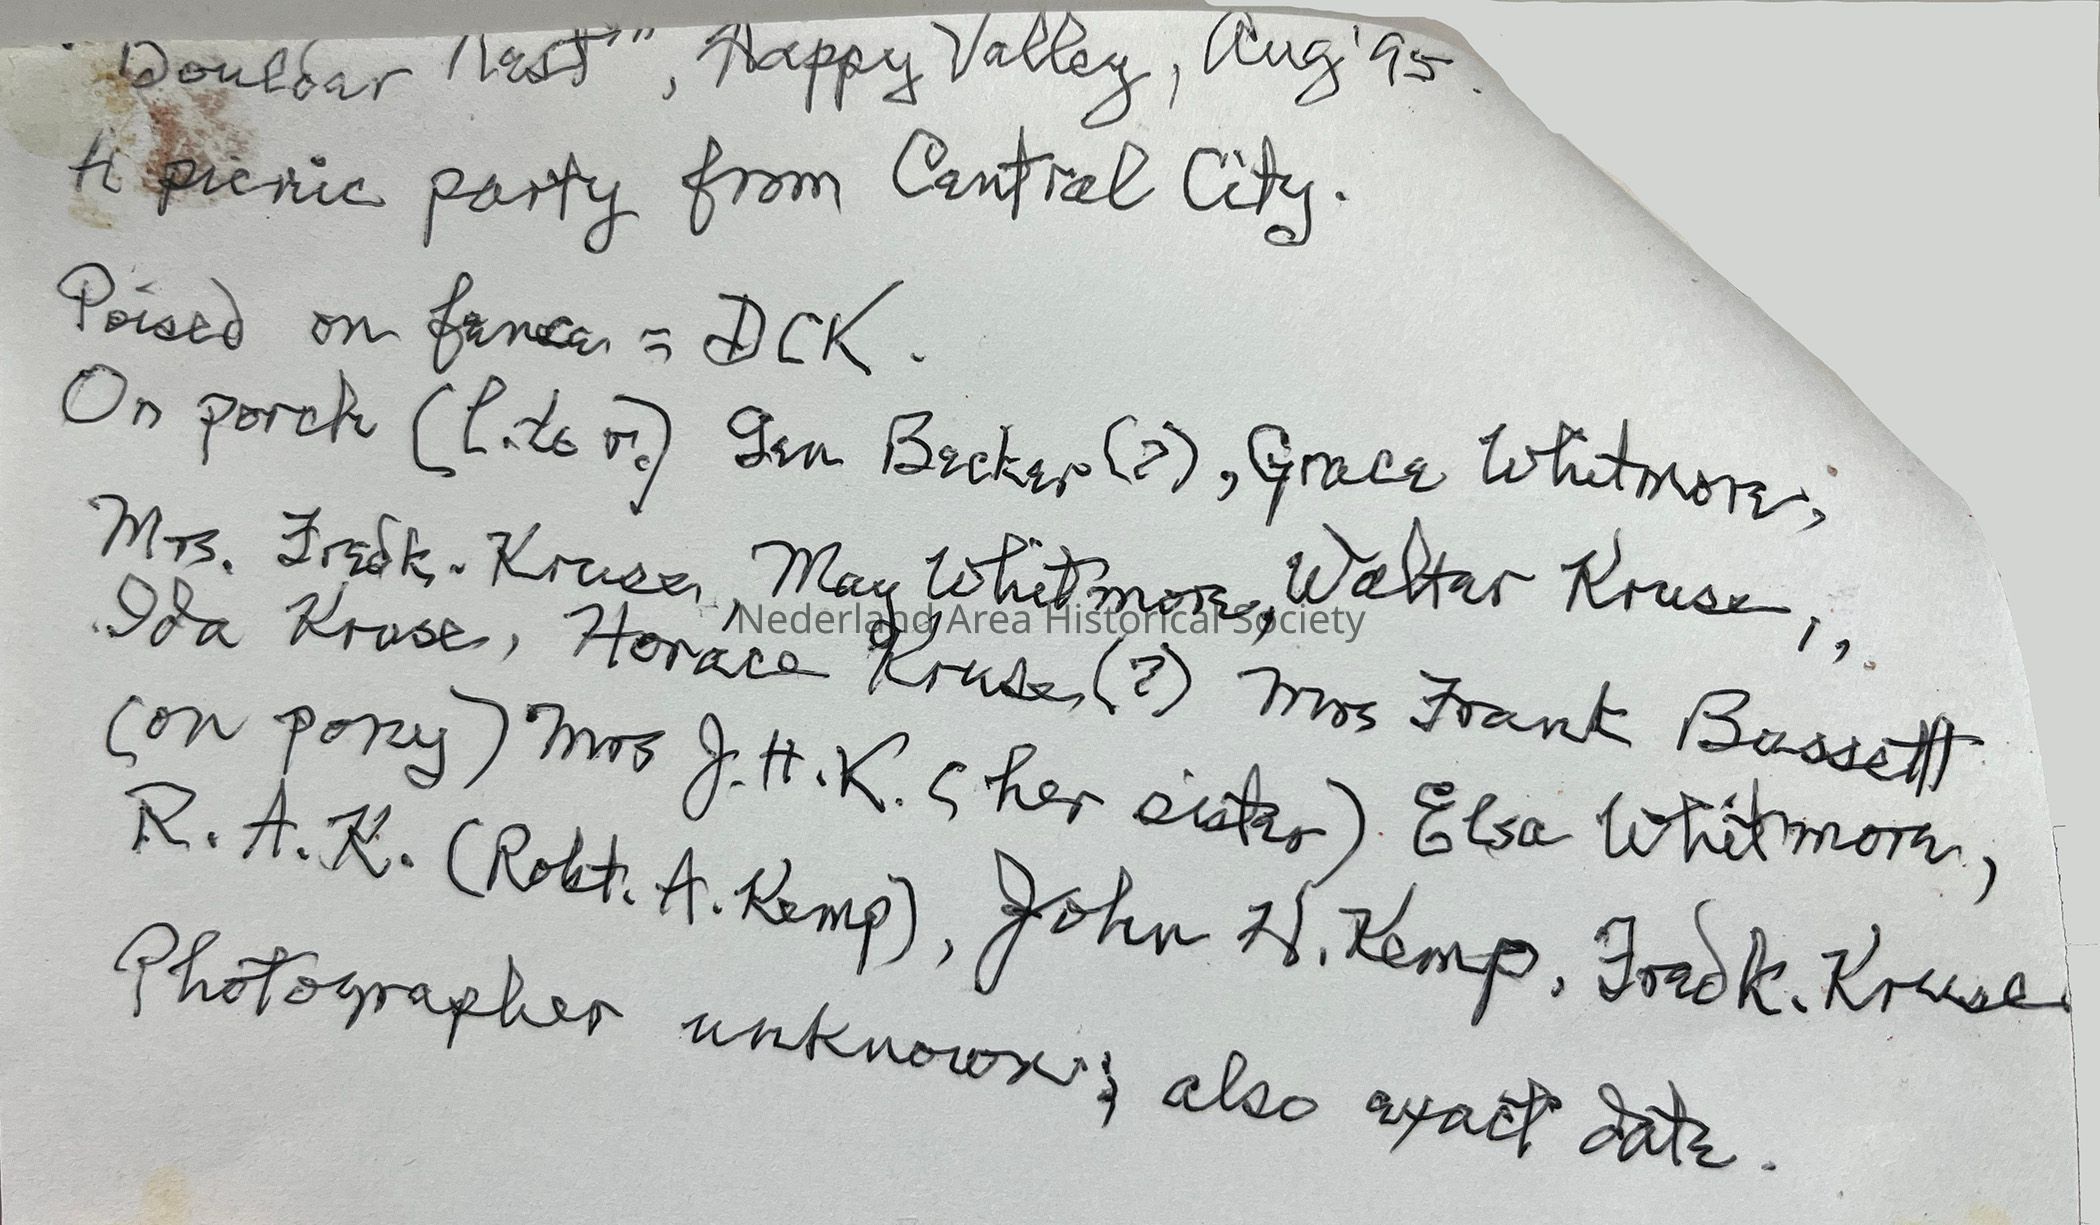 "Bouldar Nest", Happy Valley, Aug '95.
A picnic party from Central City.
Poised on fence = DCK.
On porch (l. to r.) Gen Becker (?), Grace Whitmore,
Mrs. Fredk. Kruse, May Whitmore, Walter Kruse,,
Nederland Area Historical Society
Ida Kruse, Horace Kruse (?) Mrs Frank Bassett
(on pony) Mrs J.H.K. (her sister) Elsa Whitmore,
R.A.K. (Robt. A. Kemp), John H. Kemp, Fredk. Kruse
Photographer unknown; also exact date.